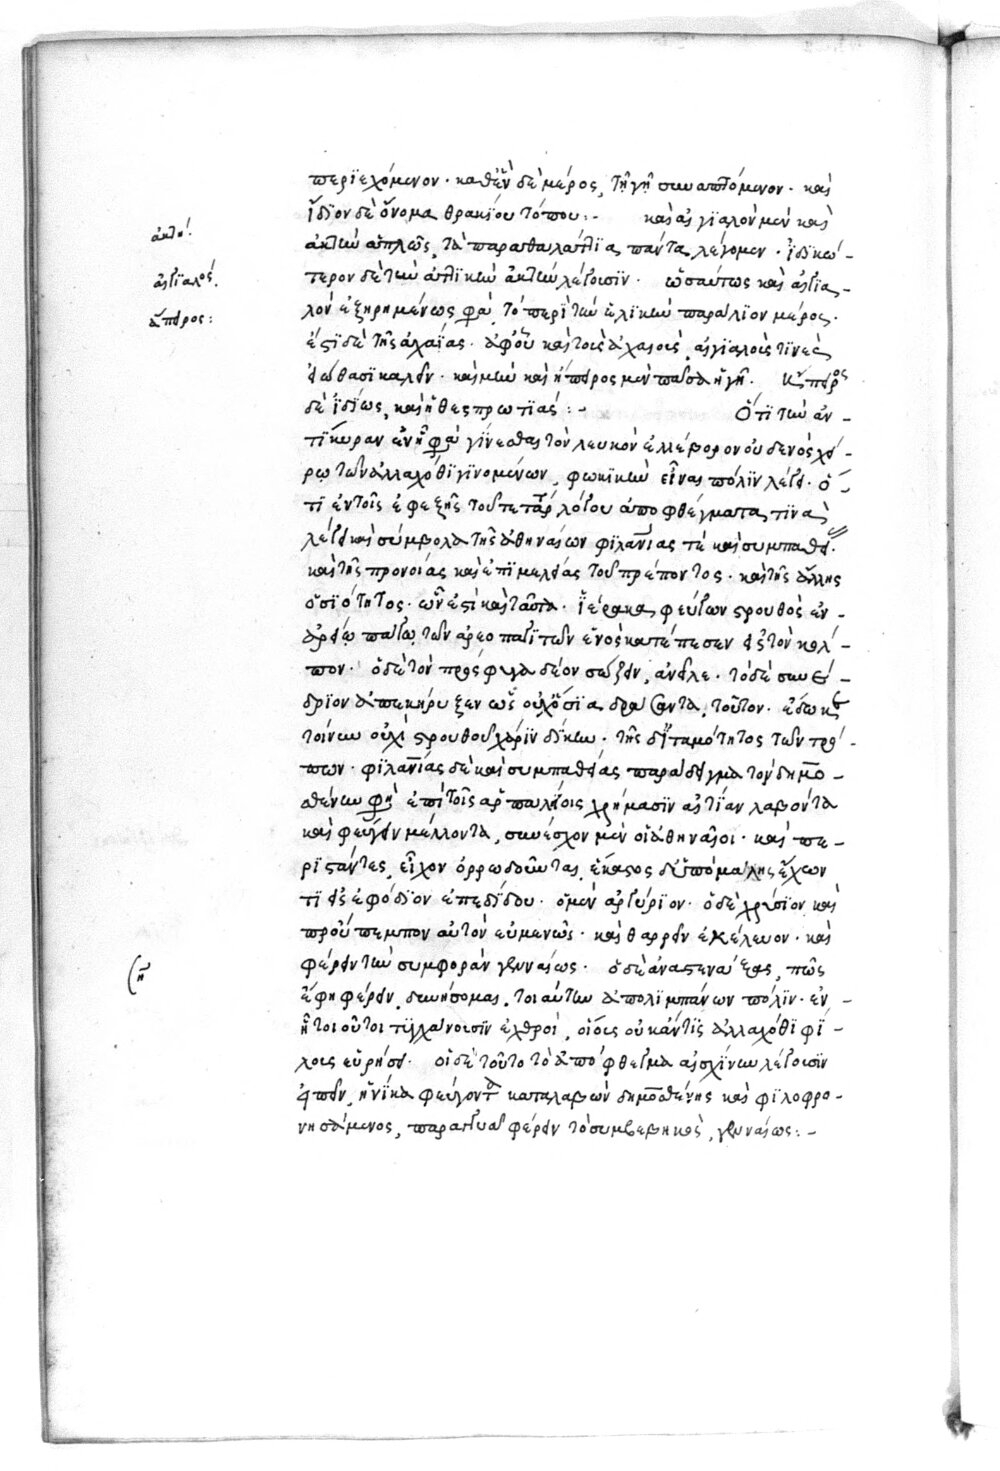 περιεχόμενον· καθ' ἓν δὲ μέρος, τῇ γῇ συναπτόμενον· καὶ
ἴδιον δὲ ὄνομα θρακίου τόπου:- καὶ αἰγιαλὸν μὲν καὶ
ἀκτή.
ἀκτὴν ἁπλῶς, τὰ παραθαλάττια πάντα λέγομεν· ἰδικώ-
αἰγιαλός.
τερον δὲ τὴν ἀττικὴν ἀκτὴν λέγουσιν· ὡσαύτως καὶ αἰγια-
ἄπειρος:
λὸν ἐξῃρημένως φασὶ, τὸ περὶ τὴν ἑλίκην παράλιον μέρος·
ἔστι δὲ τῆς ἀχαΐας· ἀφ' οὗ καὶ τοὺς ἀχαιοὺς, αἰγιαλοὺς τινὲς
εἰώθασι καλεῖν· καὶ μὴν καὶ ἤπειρος μὲν πᾶσα ἡ γῆ· ἤπειρος
δὲ ἰδίως, καὶ ἡ θεσπρωτιάς:- Ὅτι τὴν ἀν-
τίκυραν ἐν ᾗ φασὶ γίνεσθαι τὸν λευκὸν ἑλλέβορον οὐδενὸς χεί-
ρω τῶν ἀλλαχόθι γινομένων, φωκικὴν εἶναι πόλιν λέγει· ὅ-
τι ἐν τοῖς ἐφεξῆς τοῦ τετάρτου λόγου ἀποφθέγματα τινὰς
λέγει καὶ σύμβολα τῆς ἀθηναίων φιλανθρωπίας τὲ καὶ συμπαθεί-
καὶ τῆς προνοίας καὶ ἐπιμελείας τοῦ πρέποντος· καὶ τῆς ἄλλης
ὁσιότητος· ὧν ἐστὶ καὶ ταῦτα· ἱέρακα φεύγων στρουθὸς ἐν
ἀρείῳ πάγῳ τῶν ἀρεοπαγιτῶν ἑνὸς κατέπεσεν εἰς τὸν κόλ-
πον· ὁ δὲ τὸν πρόσφυγα δέον σώζειν, ἀνεῖλε· τὸ δὲ συνέ-
δριον ἀπεκήρυξεν ὡς οὐχ ὅσια δράσαντα, τοῦτον· ἔδωκε
τοίνυν οὐχὶ στρουθοῦ χάριν δίκην· τῆς δ' ἰταμότητος τῶν τρό-
πων· φιλανθρωπίας δὲ καὶ συμπαθείας παράδειγμα τὸν δημο-
σθένην φησὶ ἐπὶ τοῖς ἁρπαλείοις χρήμασιν αἰτίαν λαβόντα
καὶ φεύγειν μέλλοντα, συνέσχον μὲν οἱ ἀθηναῖοι· καὶ πε-
ριστάντες, εἶχον ὀρρωδοῦντας, ἕκαστος δ' ὑπὸ μάλης ἔχων
τι εἰς ἐφόδιον ἐπεδίδου· ὁ μὲν ἀργύριον· ὁ δὲ χρυσίον καὶ
προὔπεμπον αὐτὸν εὐμενῶς· καὶ θαρρεῖν ἐκέλευον· καὶ
φέρειν τὴν συμφορὰν γενναίως· ὁ δὲ ἀναστενάξας, πῶς
ἔφη φέρειν δυνήσομαι, τοιαύτην ἀπολιμπάνων πόλιν· ἐν
ᾗ τοιοῦτοι τυγχάνουσιν ἐχθροὶ, οἵους οὐκ ἄν τις ἀλλαχόθι φί-
λους εὑρήσει· οἱ δὲ τοῦτο τὸ ἀπόφθεγμα αἰσχίνην λέγουσιν
εἰπεῖν, ἡνίκα φεύγοντα καταλαβὼν δημοσθένης καὶ φιλοφρο-
νησάμενος, παρῄνει φέρειν τὸ συμβεβηκὸς, γενναίως:-